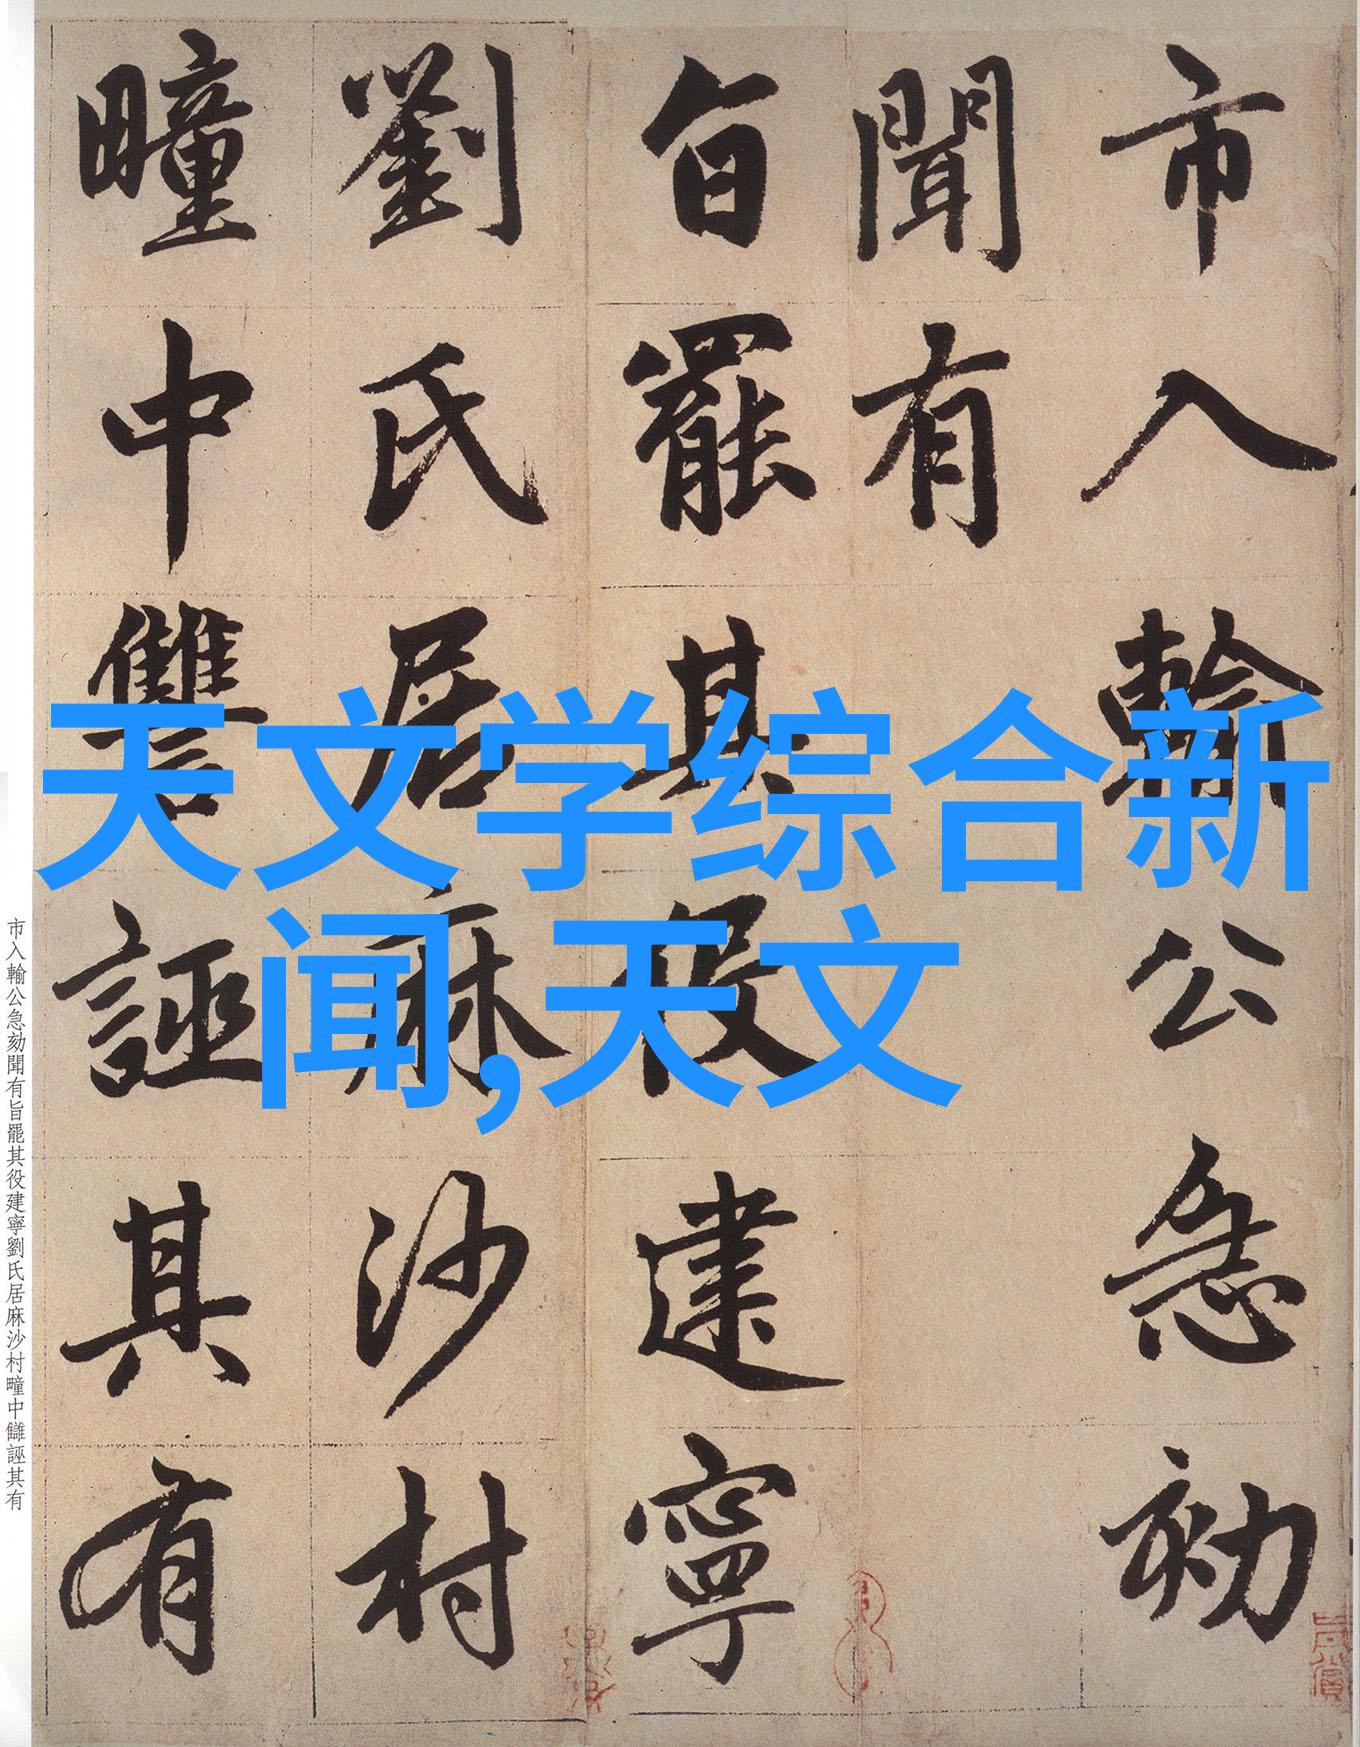 市入輸公急劾
聞有
旨罷其役建寧
劉氏居麻沙村
疃中讐誣其有
天文学综合新
闻,天文
市入輸公急劾聞有旨罷其役建寧劉氏居麻沙村疃中讎誣其有